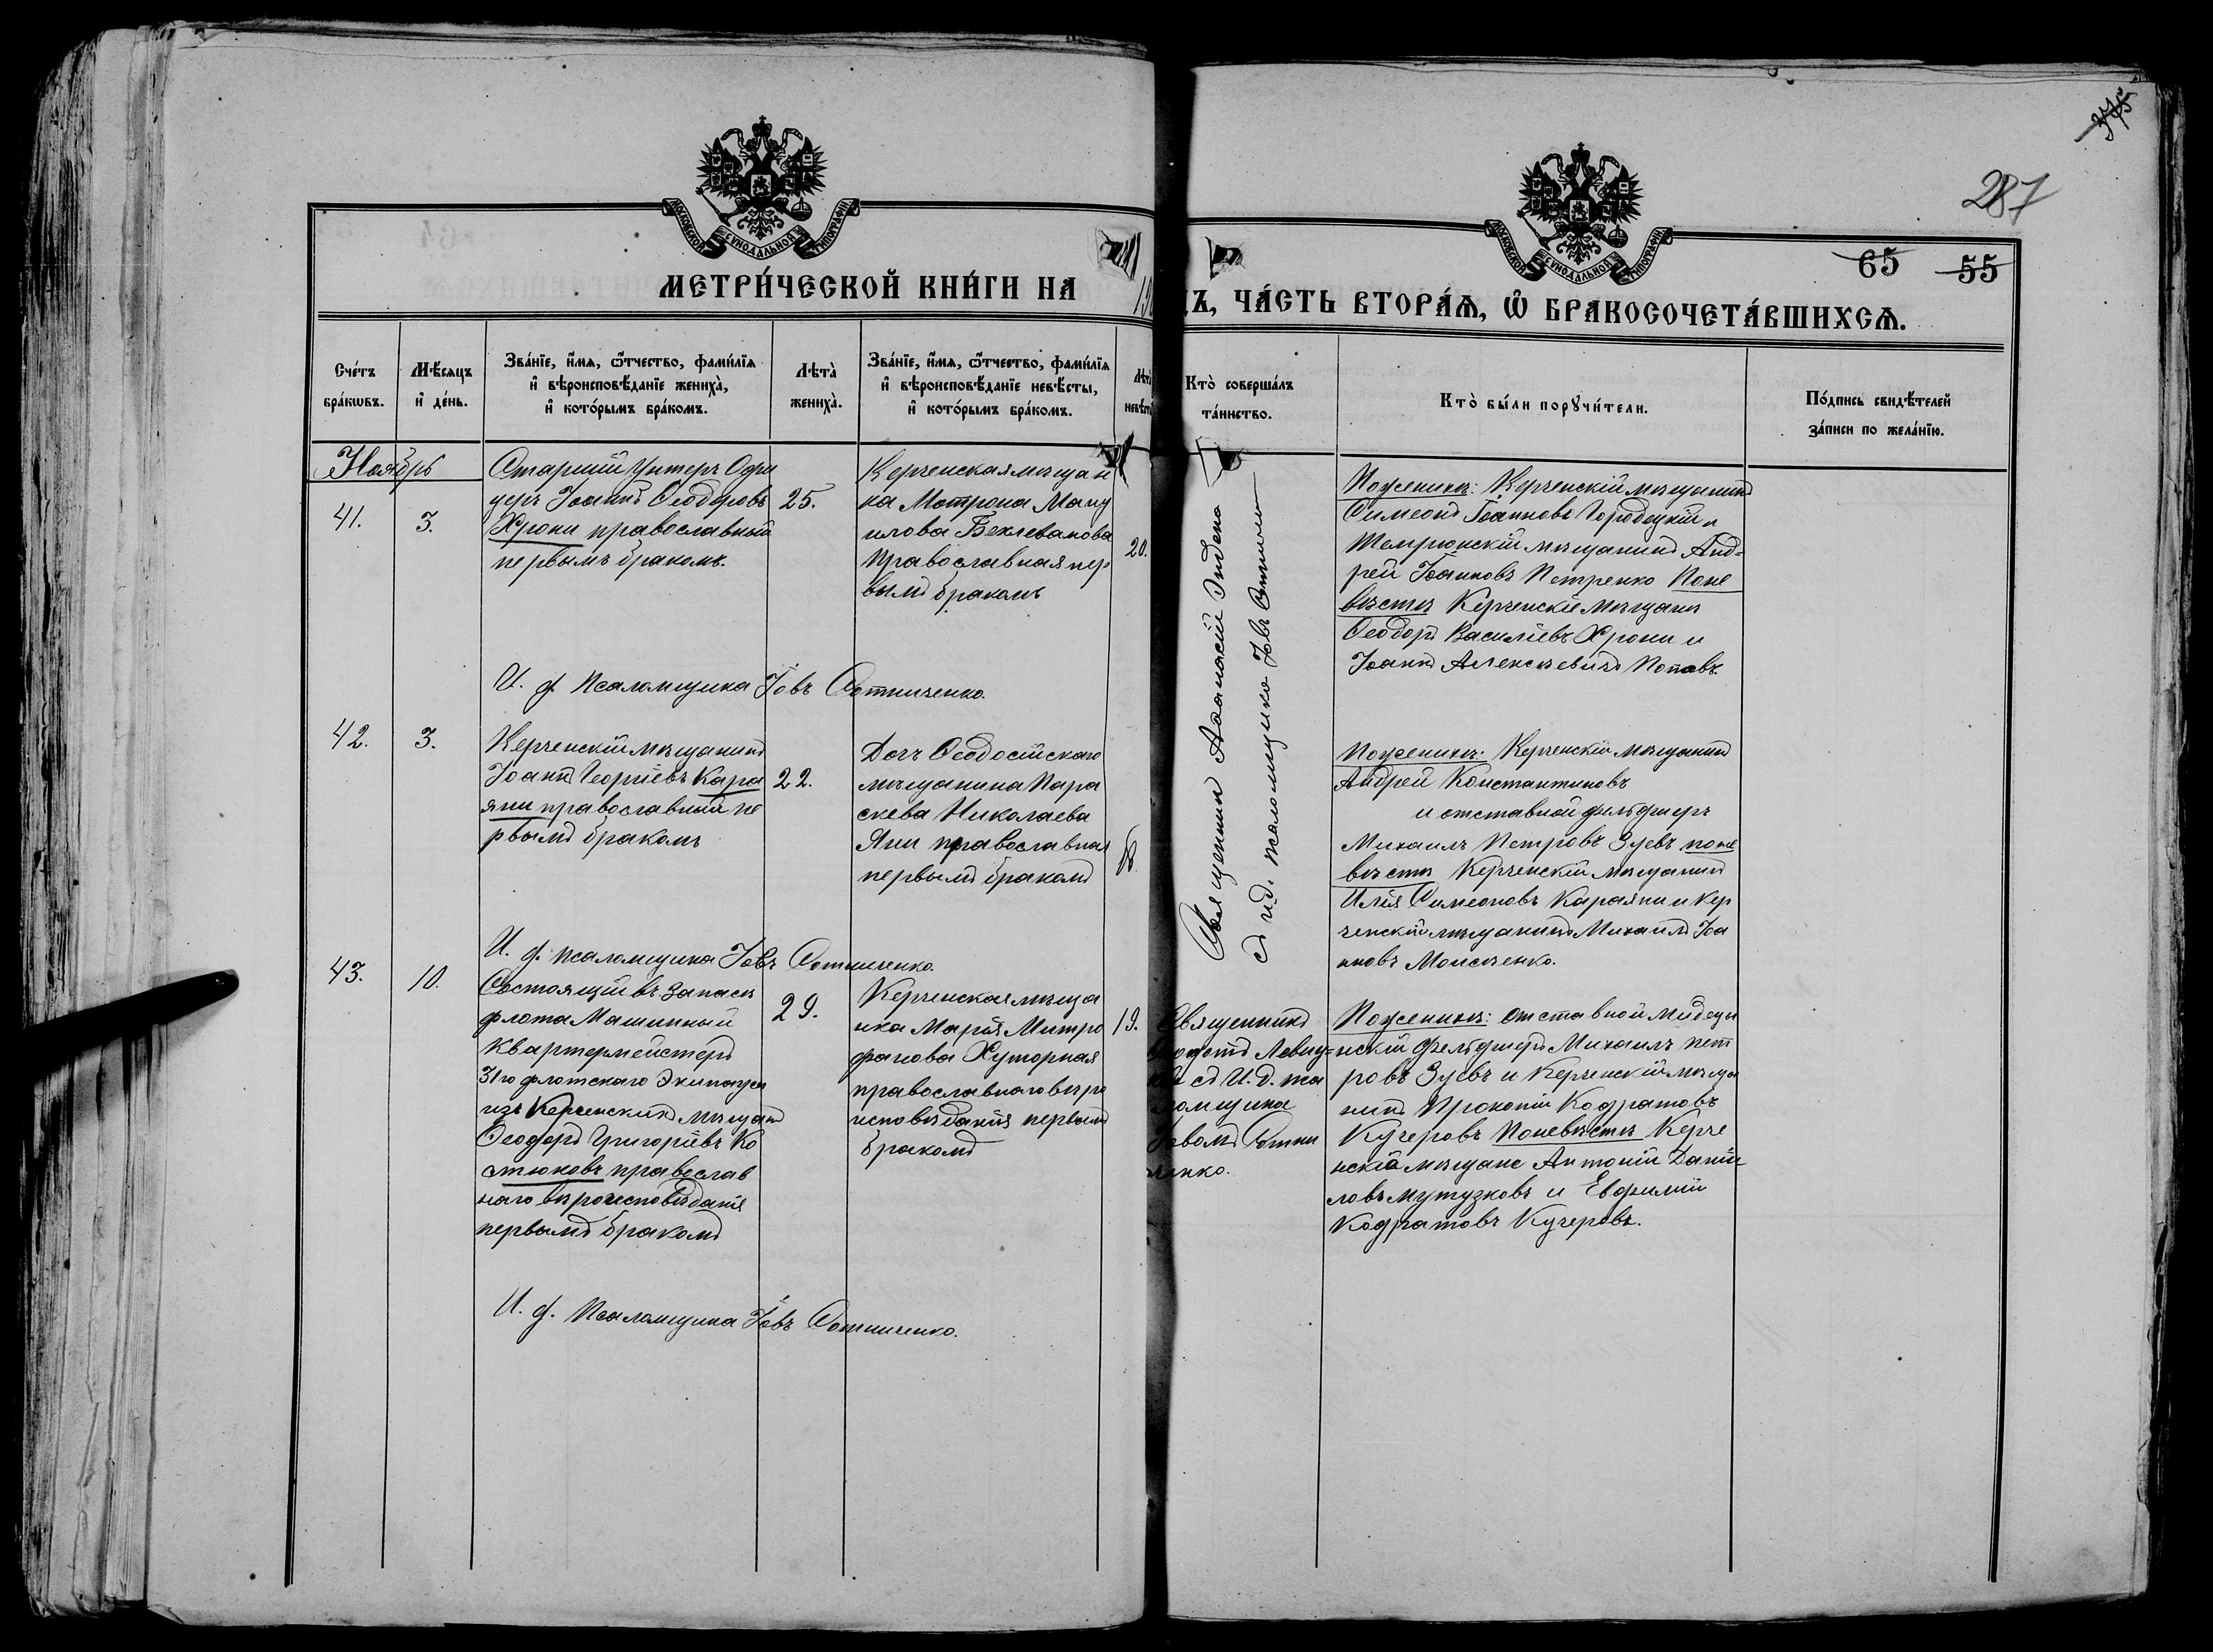 375
287
65 55
МОСКОВСКОЙ СУНОДАЛЬНОЙ ТИПОГРАФІИ
МОСКОВСКОЙ СУНОДАЛЬНОЙ ТИПОГРАФІИ
МЕТРИ́ЧЕСКОЙ КНИ́ГИ НА
ЧА́СТЬ ВТОРА́Ѧ, Ѿ БРАКОСОЧЕТА́ВШИХСѦ.
Сче́тъ
бра́кѡвъ.
Мѣ́сяцъ
и҆ де́нь.
Зва́нїе, и҆́мѧ, ѻ҆́тчество, фами́лїѧ
и҆ вѣроисповѣ́данїе женихà,
и҆ кото́рымъ бра́комъ.
Лѣ́та
женихà.
Зва́нїе, и҆́мѧ, ѻ҆́тчество, фами́лїѧ
и҆ вѣроисповѣ́данїе невѣ́сты,
и҆ кото́рымъ бра́комъ.
Кто̀ соверша́лъ
та́инство.
Кто̀ бы́ли порꙋчи́тели.
По́дпись свидѣ́телей
за́писи по жела́нїю.
Ноябрь
41.
3.
Старшій Унтеръ Офи
церъ Іоаннъ Ѳеодоровъ
Хрони православный
первымъ бракомъ.
25.
Керченская мѣщан
ка Матрона Ману
илова Беклеванова
православная пер
вымъ бракомъ
20.
Поженихѣ: Керченскій мѣщанинъ
Симеонъ Іоанновъ Городецкій и
Темрюкскій мѣщанинъ Анд-
рей Іоанновъ Петренко Поне
вѣстѣ Керченскіе мѣщане
Ѳеодоръ Василіевъ Хрони и
Іоаннъ Алексѣевичъ Поповъ.
И. д. Псаломщика Іовъ Сотниченко.
42.
3.
Керченскій мѣщанинъ
Іоаннъ Георгіевъ Кара
яни православный пе
рвымъ бракомъ
22.
Дочь Ѳеодосійскаго
мѣщанина Пара
скева Николаева
Яни православная
первымъ бракомъ
Поженихѣ: Керченскій мѣщанинъ
Андрей Константиновъ
и отставной фельдшеръ
Михаилъ Петровъ Зуевъ поне
вѣстѣ Керченскій мѣщанинъ
Илія Симеоновъ Караяни и Кер
ченскій мѣщанинъ Михаилъ Іоа
нновъ Моисеенко.
Священникъ Аѳанасій
съ и.д. псаломщика Іовъ
И. д. псаломщика Іовъ Сотниченко.
43.
10.
Состоящій въ запасѣ
флота Машинный
Квартермейстеръ
31го флотскаго Экипажа
изъ Керченскихъ мѣщанъ
Ѳеодоръ Григоріевъ Ко
стюковъ православ
наго вѣроисповѣданія
первымъ бракомъ
29.
Керченская мѣща
нка Марія Митро
фанова Хуторная
православнаго вѣро
исповѣданія первымъ
бракомъ
19.
Священникъ
съ И. д. пса
ломщика
Іовомъ Сотни
ченко.
Поженихѣ: отставной Медеци
нскій фельдшеръ Михаилъ Пет
ровъ Зуевъ и Керченскій мѣща
нинъ Прокопій Кодратовъ
Кучеровъ Поневѣстѣ Керче
нскіе мѣщане Антоній Даніи
ловъ Мутузковъ и Евфимій
Кодратовъ Кучеровъ.
И. д. Псаломщика Іовъ Сотниченко.